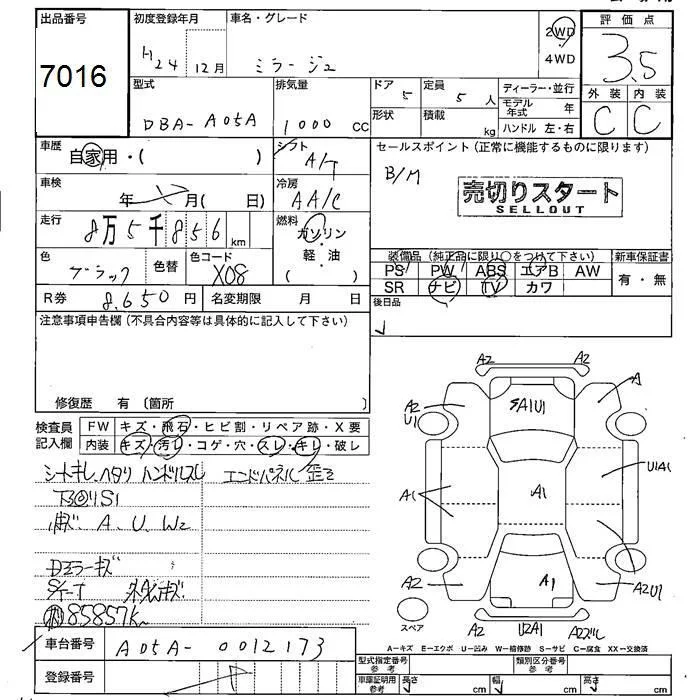 出品番号
7016
初度登録年月
H24 12月
車名・グレード
ミラージュ
2WD
4WD
評価点
3.5
外装 内装
C C
型式
DBA-A05A
排気量
1000 CC
ドア 5
定員 5 人
形状
積載 kg
ディーラー・並行
モデル年式 年
ハンドル 左・右
車歴
自家用・( )
シフト
A/T
セールスポイント (正常に機能するものに限ります)
B/M
売切りスタート
SELLOUT
車検
年 月( 日)
冷房
AA/C
走行
8万5千856 km
燃料
ガソリン
・
軽・油
( )
色
ブラック
色替
色コード
X08
装備品 (純正品に限り○をつけて下さい)
PS PW ABS エアB AW
SR ナビ TV カワ
新車保証書
有・無
R券 8,650 円
名変期限 月 日
後日品
注意事項申告欄 (不具合内容等は具体的に記入して下さい)
修復歴 有 〔箇所 〕
検査員記入欄
FW キズ・飛石・ヒビ割・リペア跡・X要
内装 キズ・汚レ・コゲ・穴・スレ・キレ・破レ
シートキレ、ヘタリ ハンドルスレ エンドパネル歪ミ
下回りS1
A、U、W2
ミラーキズ
85857k
A2 A2
A2 U1
SA1U1
A
A1
A1
U1A1
A2
A1
A2U1
スペア
A2 U2A1 A2ズレ
A-キズ E-エクボ U-凹み W-補修跡 S-サビ C-腐食 XX-交換済
車台番号
A05A-0012173
登録番号
型式指定番号 参考
類別区分番号 参考
車庫証明用 参考
長さ cm 幅 cm 高さ cm